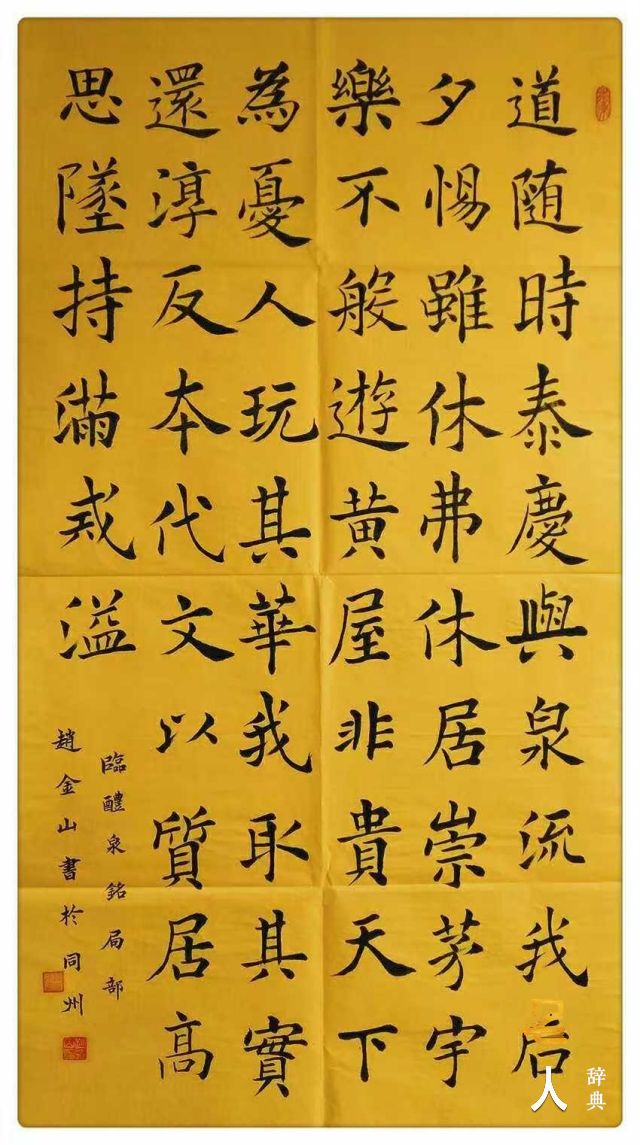 道随時泰慶與泉流我后
夕惕雖休弗休居崇茅宇
樂不般遊黄屋非貴天下
為憂人玩其華我取其實
還淳反本代文以質居高
思墜持滿戒溢
臨醴泉銘局部
趙金山書於同州
人
辞典